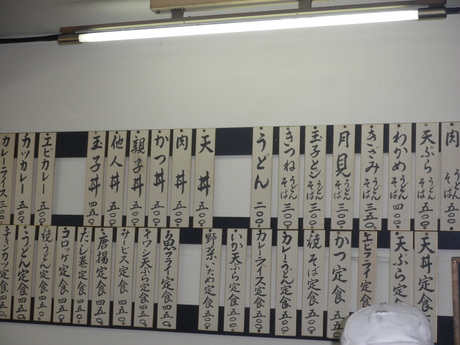 肉 うどん そば
天ぷら うどん そば
わかめ うどん そば 四〇〇
きざみ うどん そば 三五〇
月見 うどん そば 三五〇
玉子とじ うどん そば
きつね うどん そば
うどん 二〇〇
天丼 五〇〇
肉丼 五〇〇
かつ丼 五〇〇
親子丼 五〇〇
他人丼 五〇〇
玉子丼 四五〇
エビカレー 五〇〇
カツカレー 五〇〇
カレーライス 三〇〇
天丼定食
天ぷら定食
エビフライ定食
かつ定食
焼そば定食 五〇〇
カレーうどん定食 五〇〇
カレーライス定食 五〇〇
いか天ぷら定食 五〇〇
野菜いため定食 五〇〇
魚フライ定食 四五〇
天ぷら定食 四五〇
サービス定食 四五〇
唐揚定食 四五〇
だし巻定食 四五〇
コロッケ定食 四五〇
焼うどん定食 四五〇
うどん定食 四五〇
チキンカツ定食